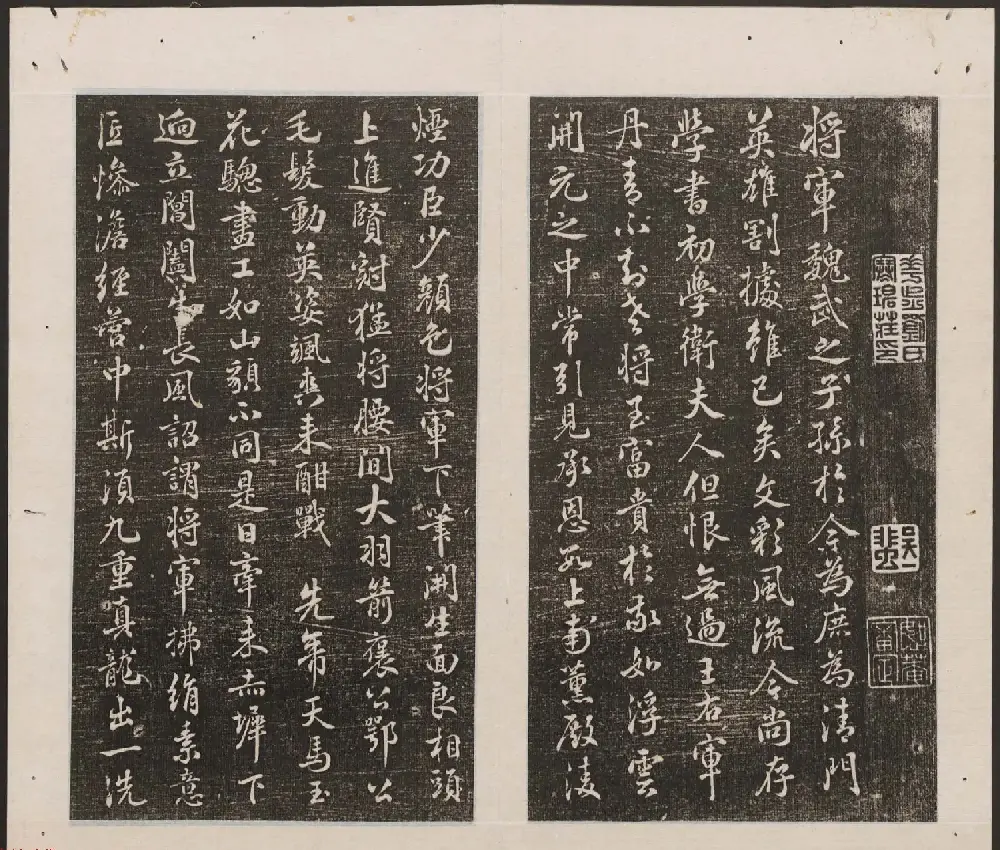 将軍魏武之子孫於今為庶為清門
英雄割據雖已矣文彩風流今尚存
學書初學衛夫人但恨無過王右軍
丹青不知老将至富貴於我如浮雲
開元之中常引見承恩數上南薰殿凌
煙功臣少顏色将軍下筆開生面良相頭
上進賢冠猛将腰間大羽箭褒公鄂公
毛髮動英姿颯爽来酣戰 先帝天馬玉
花驄畫工如山貌不同是日牽来赤墀下
逈立閶闔生長風詔謂将軍拂絹素意
匠慘澹經營中斯須九重真龍出一洗